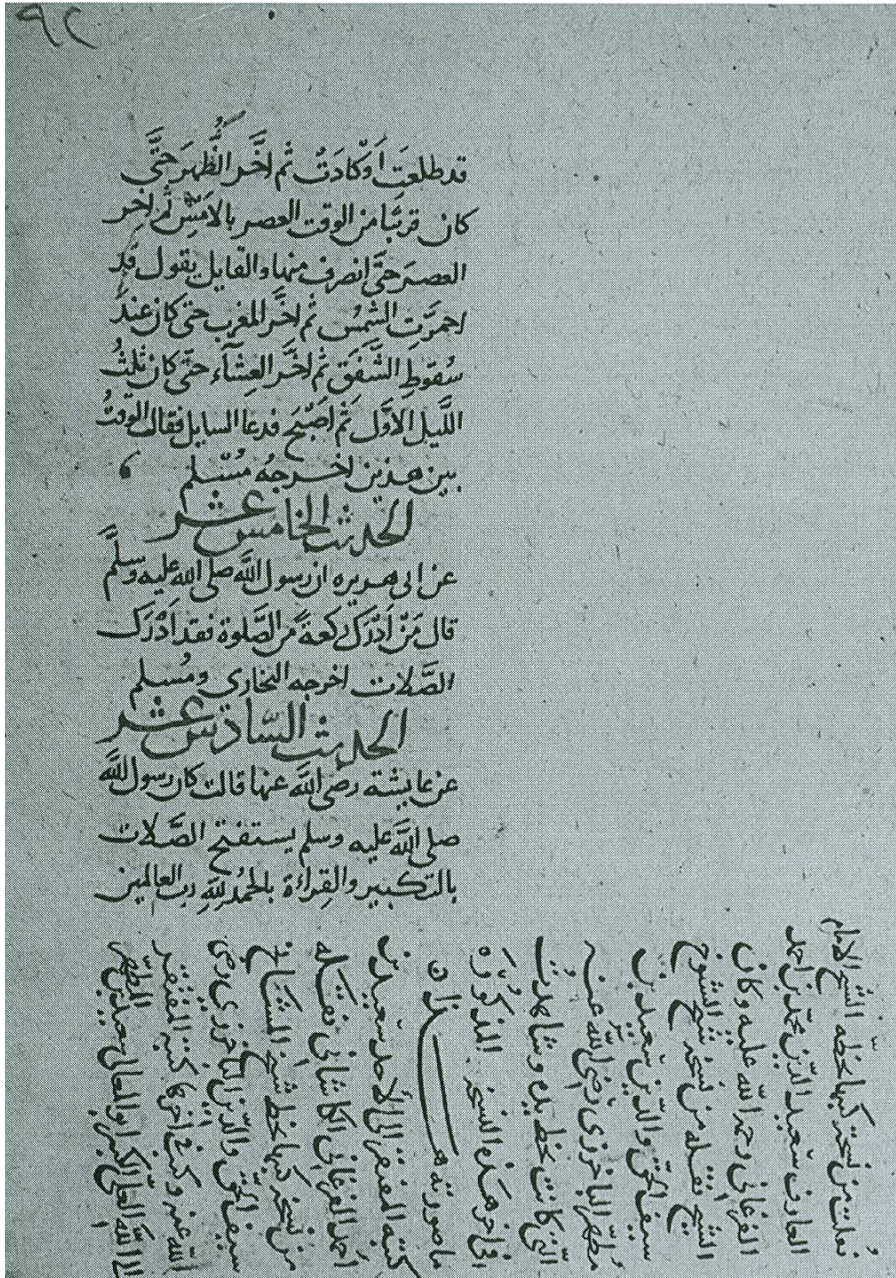 ٩٢
قد طلعت اَوْكادَتْ ثم اخَّر الظُّهرَ حَتَّى
كان قرىبًا من الوقت العصر بالاَمْسِ ثم اخر
العصرَ حتَّى انصرف منها والقايل يقول قد
احمرَّتِ الشمسُ ثم اخَّر المغرب حتى كان عِندَ
سُقوطِ الشَّفَقِ ثم اخَّر العِشآء حتَّى كان ثلثُ
اللَّيل الاَوَّل ثم اَصْبَح فدعا السايل فقال الوقتُ
بين هذين اخرجُه مُسْلم
الحدىث الخامس عشر
عن ابى هريره ان رسول الله صلى الله عليه وسلَّم
قال مَنْ اَدْرَك ركعةً من الصَّلوة فقد اَدْرَك
الصَّلات اخرجه البخارى ومُسلم
الحديث السَّادس عشر
عن عايشة رضى الله عنها قالت كان رسول الله
صلى الله عليه وسلم يستفتح الصَّلات
بالتكبير والقِراءة بالحمدُ للهِ رب العالمين
نقلت من نسخة كتبها بخطه الشيخ الامام
العارف سعيد الدّين محمّد بن احمد
الفرغانى رحمة الله عليه وكان
الشيخ نقله من نسخة شيخ الشيوخ
سيف الحق والدّين سَعِيد بن
مُطهّر الباخرزى رضى الله عنه
التى كانت بخط يده وشاهدتُ
فى اخر هذه النسخة المذكورَه
ما صورته هذان
كتبه المفتقر الى الاحد سعيد بن
احمد الفرغانى الكاشانى نقله
من نسخة كتبها بخط شيخ المشايخ
سيف الحق والدّين الباخرزى رضى
الله عنه وكتب فى اخرها كتبه المفتقر
الى الله العلى الكبير ابو المعالى سعيد بن المطهر